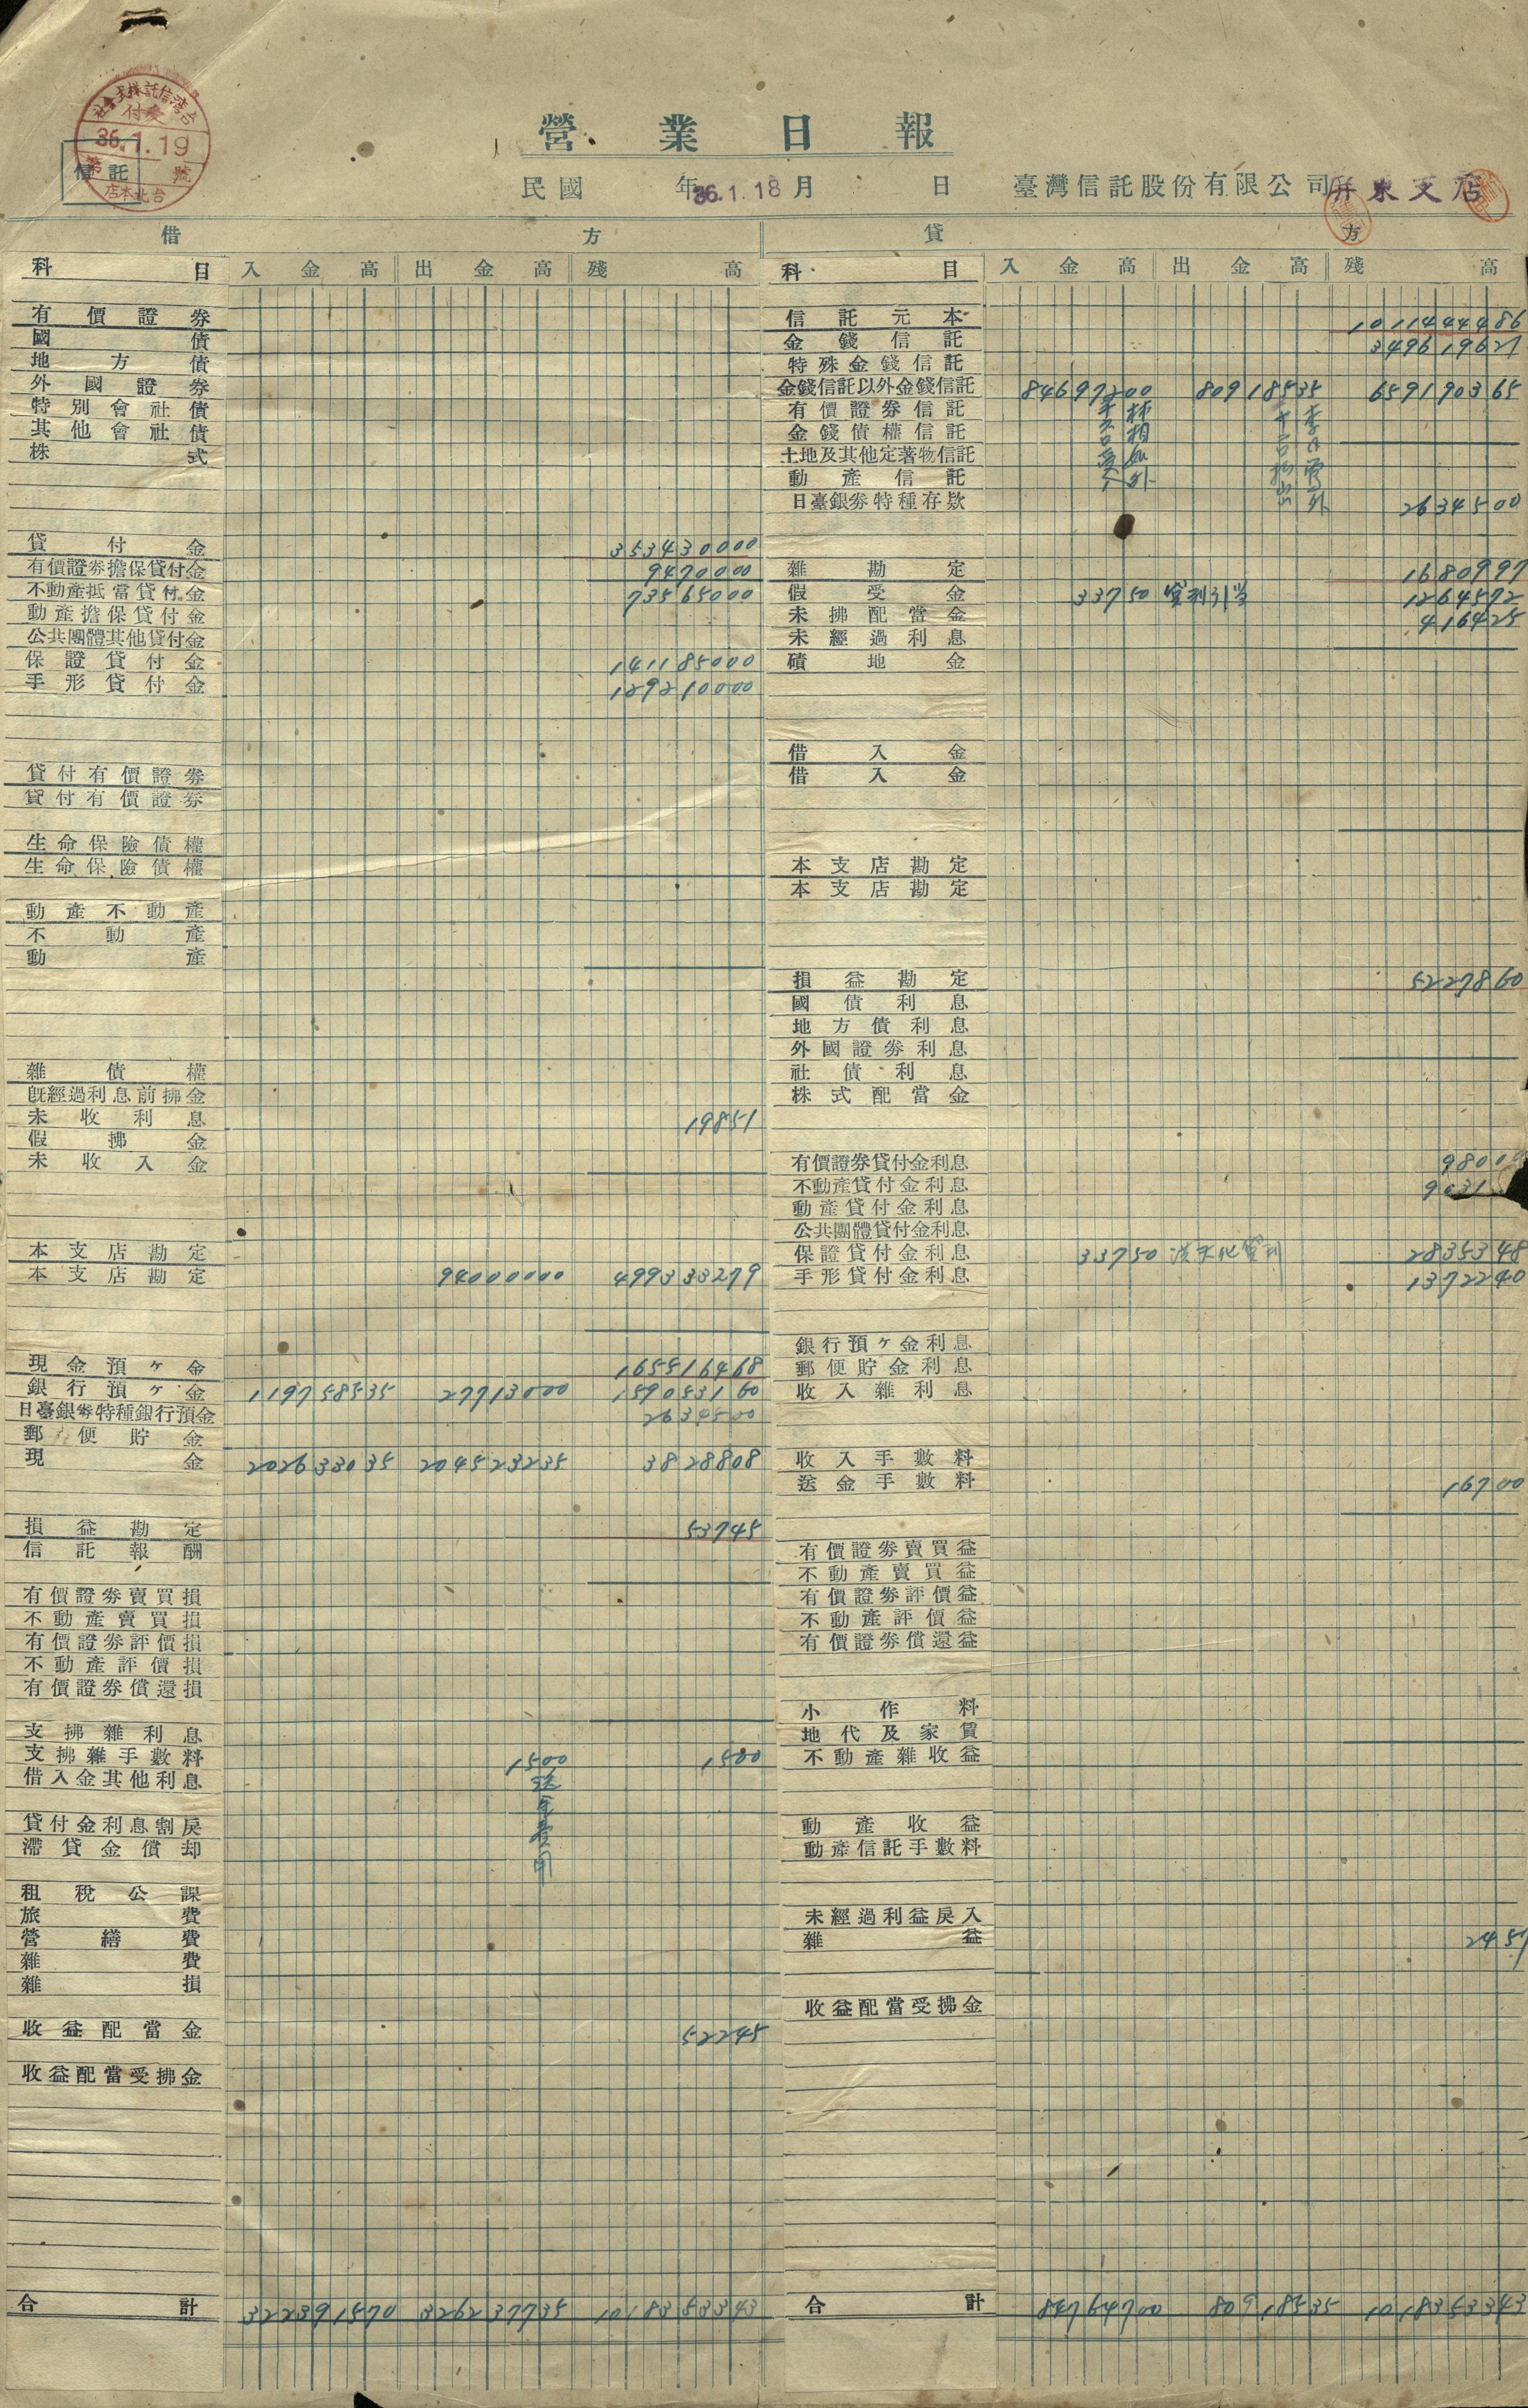 營業日報
台灣信託株式會社
受付
36.1.19
第 號
台北本店
信託
民國 年 36.1.18 月 日 臺灣信託股份有限公司屏東支店
借方
科目 入金高 出金高 殘高
有價證券
國債
地方債
外國證券
特別會社債
其他會社債
株式
貸付金 353430000
有價證券擔保貸付金 9470000
不動產抵當貸付金 73565000
動產擔保貸付金
公共團體其他貸付金
保證貸付金 141185000
手形貸付金 129210000
貸付有價證券
貸付有價證券
生命保險債權
生命保險債權
動產不動產
不動產
動產
雜債權
既經過利息前拂金
未收利息 19851
假拂金
未收入金
本支店勘定
本支店勘定 94000000 499333279
現金預ヶ金 165516468
銀行預ヶ金 119758535 27713000 159053160
日臺銀券特種銀行預金 2634500
郵便貯金
現金 202633035 204523235 3828808
損益勘定 53745
信託報酬
有價證券賣買損
不動產賣買損
有價證券評價損
不動產評價損
有價證券償還損
支拂雜利息
支拂雜手數料 1500 1500
送金費用
借入金其他利息
貸付金利息割戾
滯貸金償却
租稅公課
旅費
營繕費
雜費
雜損
收益配當金 52245
收益配當受拂金
合計 322391570 326237735 1018353343
貸方
科目 入金高 出金高 殘高
信託元本 1011444486
金錢信託 349619621
特殊金錢信託
金錢信託以外金錢信託 84697200 80918535 659190365
有價證券信託
金錢債權信託
土地及其他定著物信託
動產信託
日臺銀券特種存款 2634500
雜勘定 1680997
假受金 33750 1264572
未拂配當金 416425
未經過利息
積地金
借入金
借入金
本支店勘定
本支店勘定
損益勘定 5227860
國債利息
地方債利息
外國證券利息
社債利息
株式配當金
有價證券貸付金利息
不動產貸付金利息
動產貸付金利息
公共團體貸付金利息
保證貸付金利息 33750 2835348
手形貸付金利息 1372240
銀行預ヶ金利息
郵便貯金利息
收入雜利息
收入手數料
送金手數料 16700
有價證券賣買益
不動產賣買益
有價證券評價益
不動產評價益
有價證券償還益
小作料
地代及家賃
不動產雜收益
動產收益
動產信託手數料
未經過利益戾入
雜益 2457
收益配當受拂金
合計 84764700 80918535 1018353343